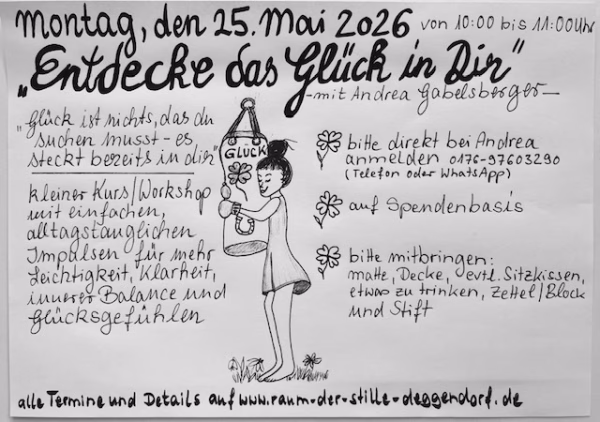 Montag, den 25. Mai 2026 von 10:00 bis 11:00 Uhr
„Entdecke das Glück in Dir"
- mit Andrea Gabelsberger -
„Glück ist nichts, das du
suchen musst - es
steckt bereits in dir"
kleiner Kurs/Workshop
mit einfachen,
alltagstauglichen
Impulsen für mehr
Leichtigkeit, Klarheit,
innerer Balance und
Glücksgefühlen
GLÜCK
bitte direkt bei Andrea
anmelden 0176-97603290
(Telefon oder WhatsApp)
auf Spendenbasis
bitte mitbringen:
matte, Decke, evtl. Sitzkissen,
etwas zu trinken, Zettel/Block
und Stift
alle Termine und Details auf www.raum-der-stille-deggendorf.de